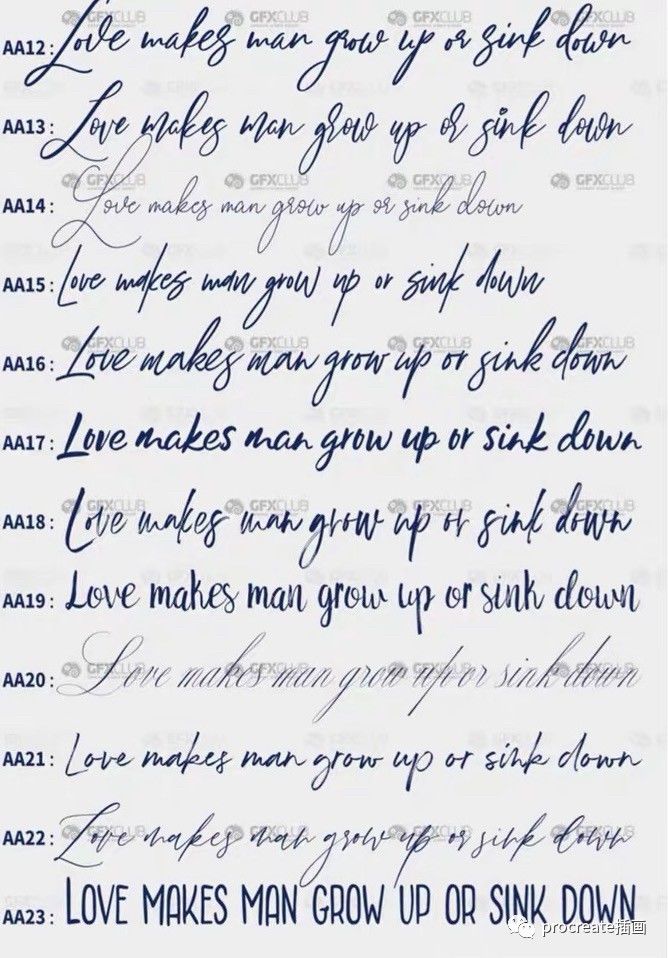 AA12: Love makes man grow up or sink down
AA13: Love makes man grow up or sink down
AA14: Love makes man grow up or sink down
AA15: Love makes man grow up or sink down
AA16: Love makes man grow up or sink down
AA17: Love makes man grow up or sink down
AA18: Love makes man grow up or sink down
AA19: Love makes man grow up or sink down
AA20: Love makes man grow up or sink down
AA21: Love makes man grow up or sink down
AA22: Love makes man grow up or sink down
AA23: LOVE MAKES MAN GROW UP OR SINK DOWN
GFXCLUB
procreate插画